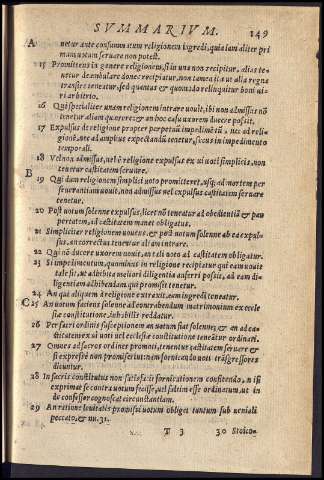 SVMMARIVM. 149
A
netur ante consummatum religionem ingredi, quia iam aliter pri
mam votum seruare non potest.
15 Promittens in genere religionem, si in una non recipitur, alias te-
netur deambulare donec recipiatur, non tamen ita ut alia regna
transire teneatur, sed quantas & quomodo relinquitur boni ui-
ri arbitrio.
16 Qui specialiter unam religionem intrare uouit, ibi non admissus nõ
tenetur aliam quærere: & an hoc casu uxorem ducere possit.
17 Expulsus de religione propter perpetuũ impedimẽtũ, nec ad religi-
onẽ, nec ad amplius expectandũ tenetur, secus in impedimento
temporali.
18 Vel nox admissus, uel è religione expulsus ex ui uoti simplicis, non
tenetur castitatem seruare.
B
19 Qui dum religionem simplici uoto promitteret, usq; ad mortem per
seuerantiam uouit, non admissus uel expulsus castitatem seruare
tenetur.
20 Post uotum solenne expulsus, licet nõ teneatur ad obedientiã & pau
pertatem, ad castitatem manet obligatus.
21 Simpliciter religionem uouens, & post uotum solenne ab ea expul-
sus, an correctus teneatur aliam intrare.
22 Qui nõ ducere uxorem uouit, an tali uoto ad castitatem obligatur.
23 Si impedimentum, quominus in religione recipiatur qui eam uouit
tale sit, ut adhibita maiori diligentia auferri possit, ad eam di-
ligentiam adhibendam qui promisit tenetur.
24 An qui aliquem à religione extraxit, eam ingredi teneatur.
C 25 An uotum faciens solenne ad contrahendum matrimonium ex eccle
siæ constitutione, inhabilis reddatur.
26 Per sacri ordinis susceptionem an uotum fiat solenne, & an ad ca-
stitatem ex ui uoti uel ecclesiæ constitutione teneatur ordinatꝰ.
27 Omnes ad sacros ordines promoti, tenentur castitatem seruare &
si expresse non promiserint: nem fornicando uoti trãsgressores
dicuntur.
28 In sacris constitutus non satisfacit fornicationem confitendo, nisi
exprimat se contra uotum fecisse, uel saltim esse ordinatum, ut in-
de confessor cognoscat circunstantiam.
29 An ratione leuitatis promissi uotum obliget tantum sub ueniali
peccato, & nu. 31.
T 3 30 Stoico-